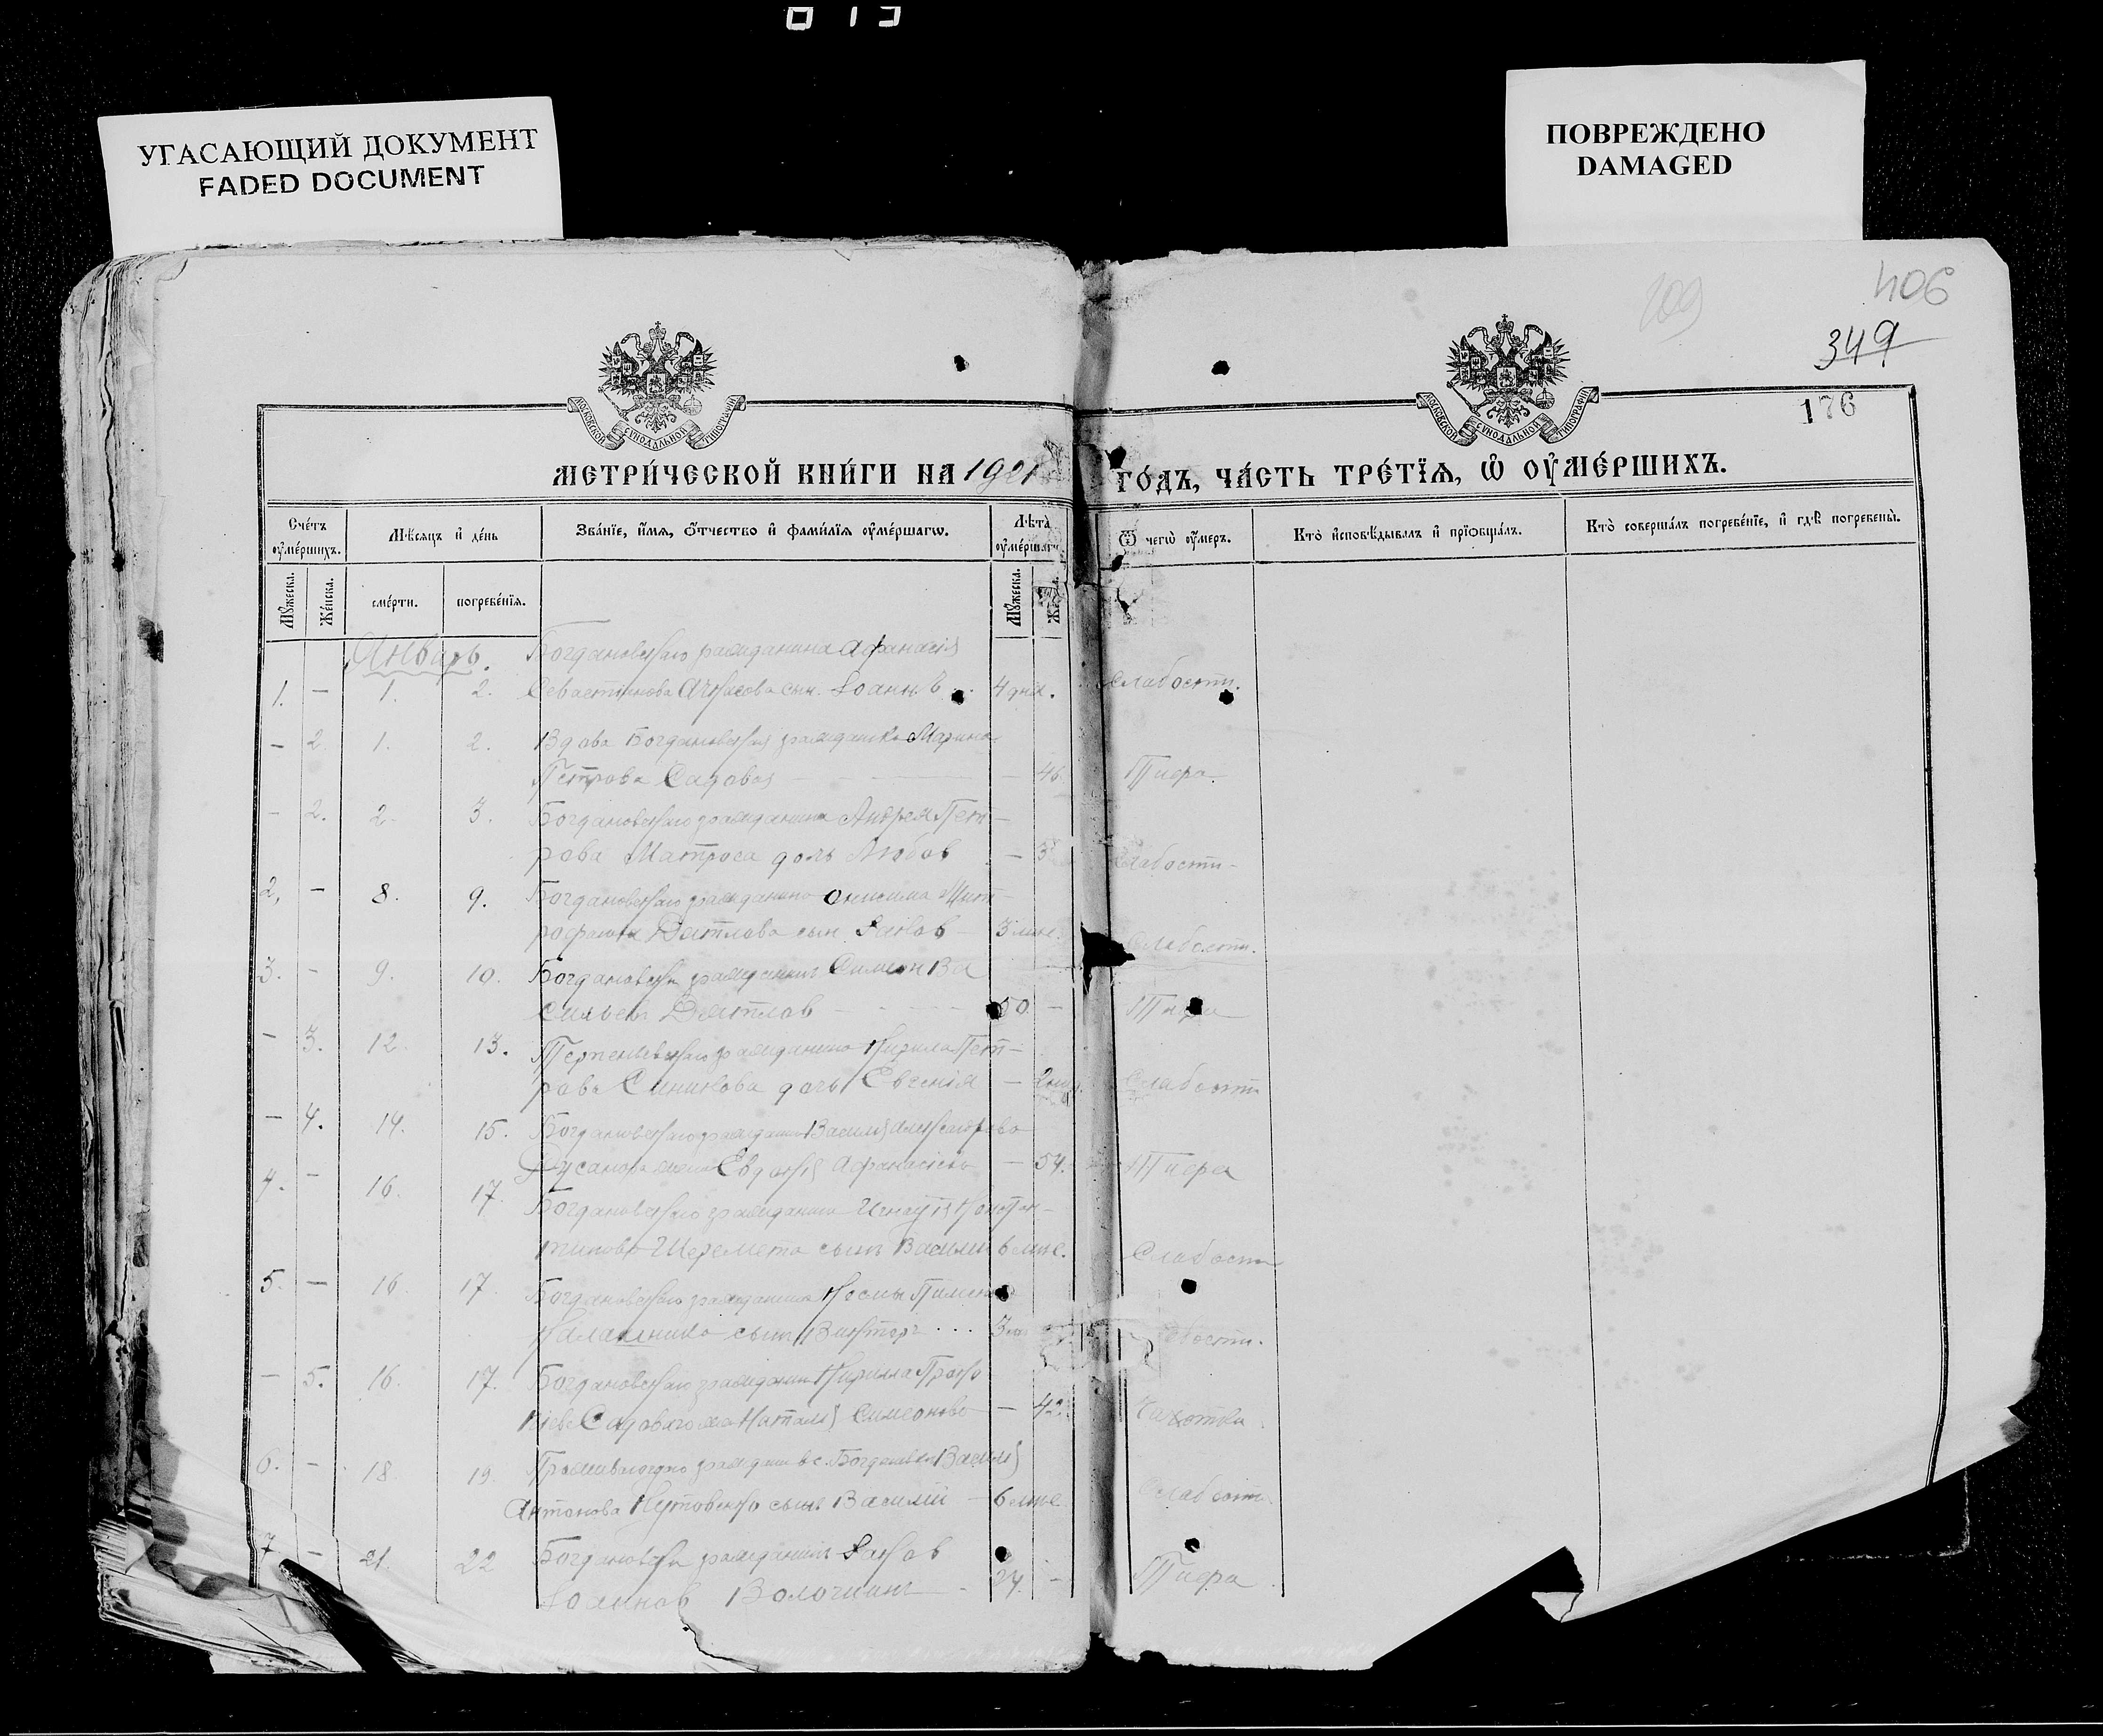 813
УГАСАЮЩИЙ ДОКУМЕНТ
FADED DOCUMENT
ПОВРЕЖДЕНО
DAMAGED
109
406
349
176
МОСКОВСКОЙ СУНОДАЛЬНОЙ ТИПОГРАФІИ
МОСКОВСКОЙ СУНОДАЛЬНОЙ ТИПОГРАФІИ
МЕТРИ́ЧЕСКОЙ КНИ́ГИ НА 1921 ГО́ДЪ, ЧА́СТЬ ТРЕ́ТЇѦ, Ѡ҆ ОУ҆МЕ́РШИХЪ.
Сче́тъ оу҆ме́ршихъ.
Мѣ́сѧцъ и҆ де́нь
Зва́нїе, и҆́мѧ, ѻ҆́тчество и҆ фами́лїѧ оу҆ме́ршагѡ.
Лѣ́та оу҆ме́ршагѡ
Ѿ чегѡ̀ оу҆́меръ.
Кто̀ и҆сповѣ́дывалъ и҆ прїѡбща́лъ.
Кто̀ соверша́лъ погребе́нїе, и҆ гдѣ̀ погребены̀.
Мꙋ́жеска.
Же́нска.
сме́рти.
погребе́нїѧ.
Мꙋ́жеска.
Январь.
Богдановскаго гражданина Афанасія
1. — 1. 2. Севастіанова сын. Іоаннъ 4 дня. Слабости.
— 2. 1. 2. Вдова Богдановская гражданка Марина
Петрова Садовая — 46 Тифа.
— 2. 2. 3. Богдановскаго гражданина Андрея Пет-
рова Матроса дочь Любовь — 3 Слабости
2. — 8. 9. Богдановскаго гражданина Онисима Мит-
рофанова Дятлова сын Яков 3 мес. Слабости.
3. — 9. 10. Богдановскій гражданинъ Симеон Ва
сильевъ Дятлов 50 — Тифа
— 3. 12. 13. гражданина Кирила Пет-
рова Синикова дочь Евгенія — Слабости
— 4. 14. 15. Богдановскаго гражданина Василія
жена Евдокія Афанасіева — 54. Тифа
4. — 16. 17. Богдановскаго гражданина Игнатія Констан-
тинова Шеремета сынъ Василій 6 мес. Слабости
5. — 16. 17. Богдановскаго гражданина Космы Пимена
Калашника сынъ Викторъ ... 3 Слабости.
— 5. 16. 17. Богдановскаго гражданина Кирилла Проко
піева Садового жена Наталія Симеонова — 42. Чахотки
6. — 18. 19. гражданина в с. Богдановке Василія
Антонова сынъ Василій — 6 мес. Слабости.
7 — 21. 22 Богдановскій гражданинъ Яков
Іоаннов Волошинъ — 24. — Тифа